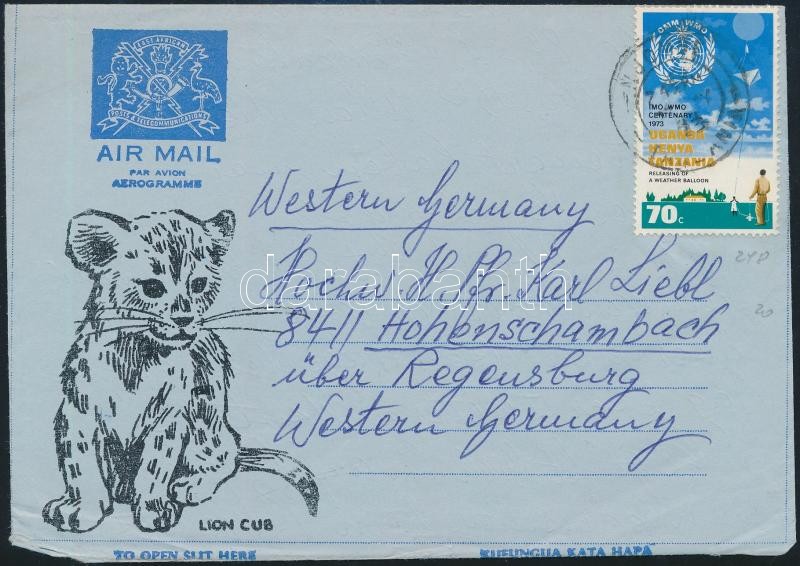 EAST AFRICAN
POSTS & TELECOMMUNICATIONS
AIR MAIL
PAR AVION
AEROGRAMME
OMM WMO
IMO WMO
CENTENARY
1973
UGANDA
KENYA
TANZANIA
RELEASING OF
A WEATHER BALLOON
70c
Western Germany
Hochw H. Pfr. Karl Liebl
8411 Hohenschambach
über Regensburg
Western Germany
darabanth
LION CUB
TO OPEN SLIT HERE
KUFUNGUA KATA HAPA